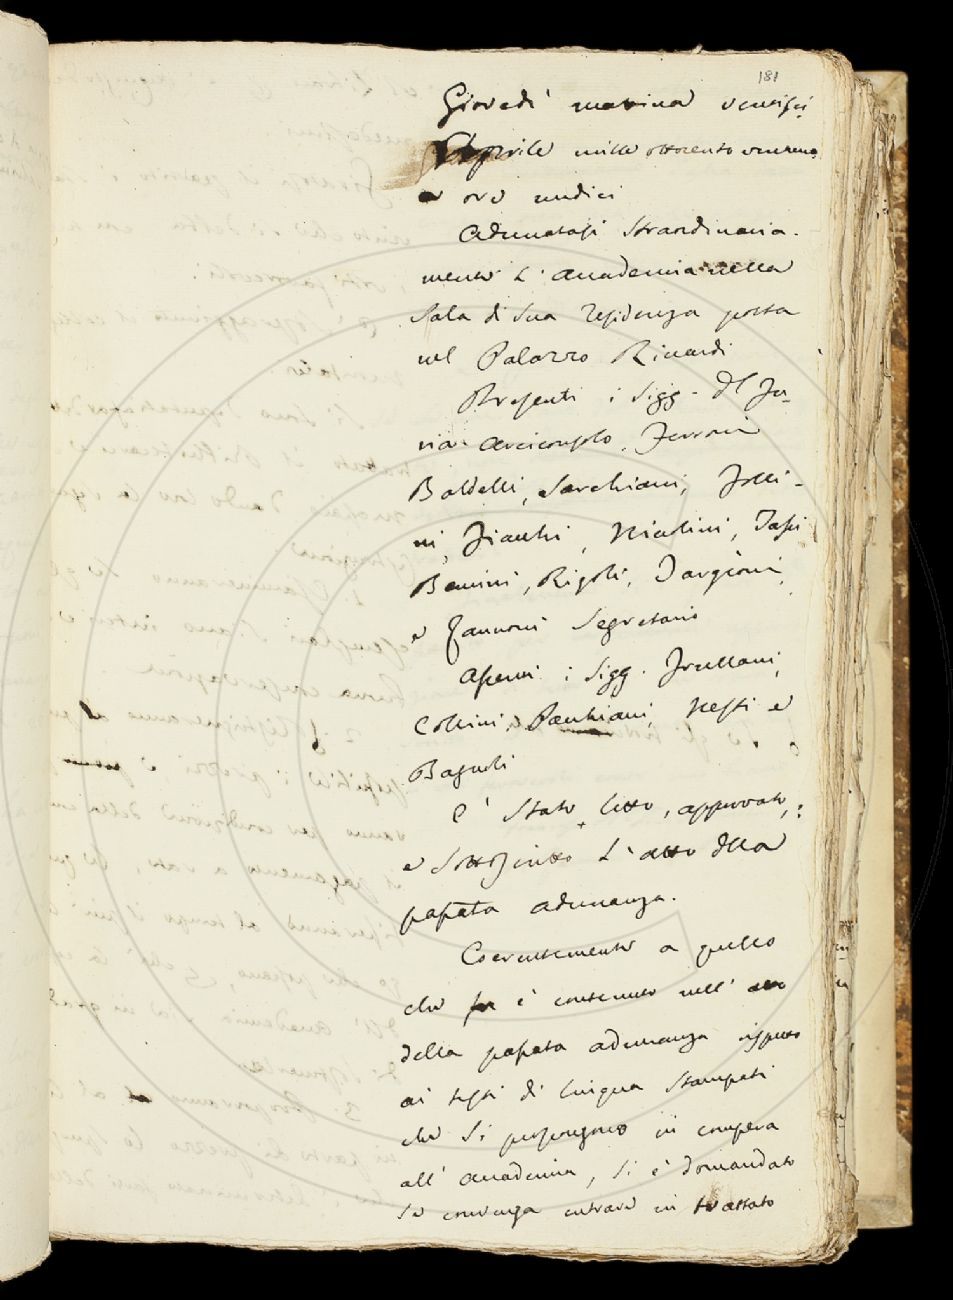 181
Giovedì mattina ventisei
Aprile mille ottocento ventuno
a ore undici
Adunatasi straordinaria-
mente l'Accademia nella
Sala di sua residenza posta
nel Palazzo Riccardi
Presenti i Sigg.
Arciconsolo, Ferroni
Baldelli, Sarchiani, Folli-
ni, Fiacchi, Niccolini,
Bencini, Rigoli, Targioni,
e Zannoni Segretario
Assenti i Sigg. Frullani,
Collini, Pacchiani, Nesti e
Bagnoli
E' stato letto, approvato,
e sottoscritto l'atto della
passata adunanza.
Coerentemente a quello
che è contenuto nell' atto
della passata adunanza rispetto
ai testi di lingua stampati
che si propongono in compera
all' Accademia, si è domandato
se convenga entrare in trattato